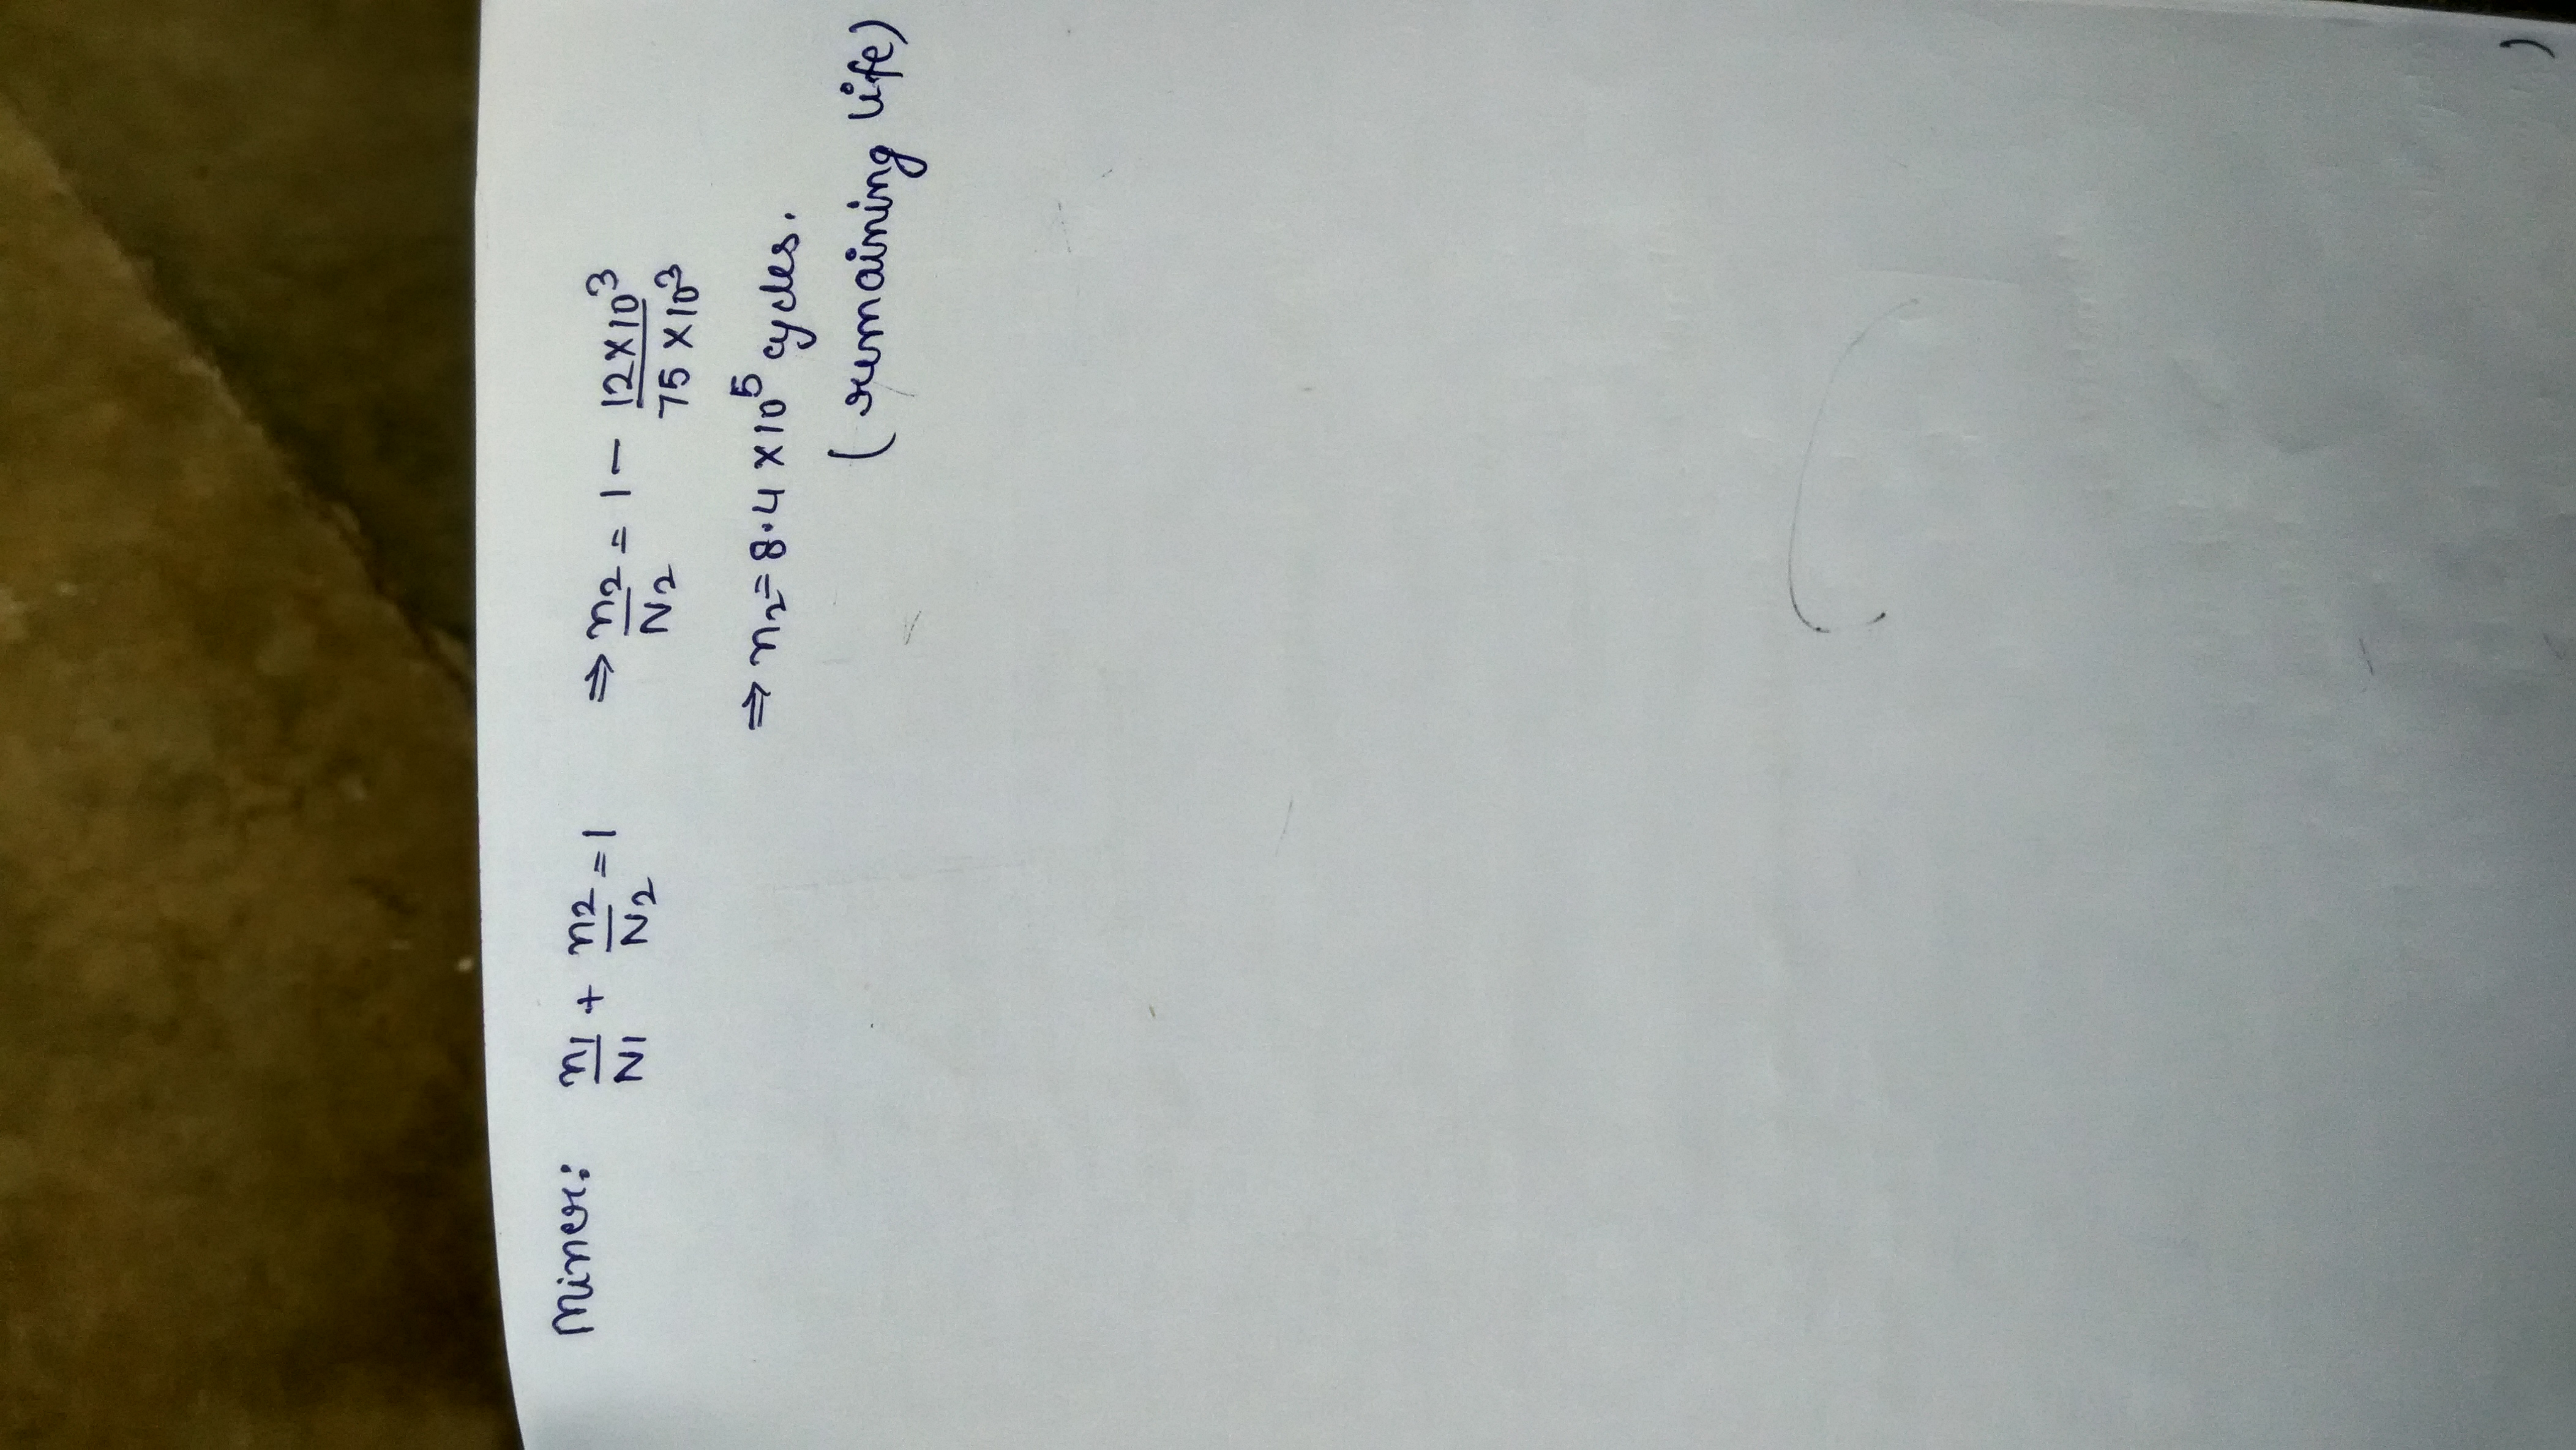 Miner: n1/N1 + n2/N2 = 1 ⇒ n2/N2 = 1 - 12×10³/75×10³
⇒ n2 = 8.4×10⁵ cycles.
(remaining life)
)